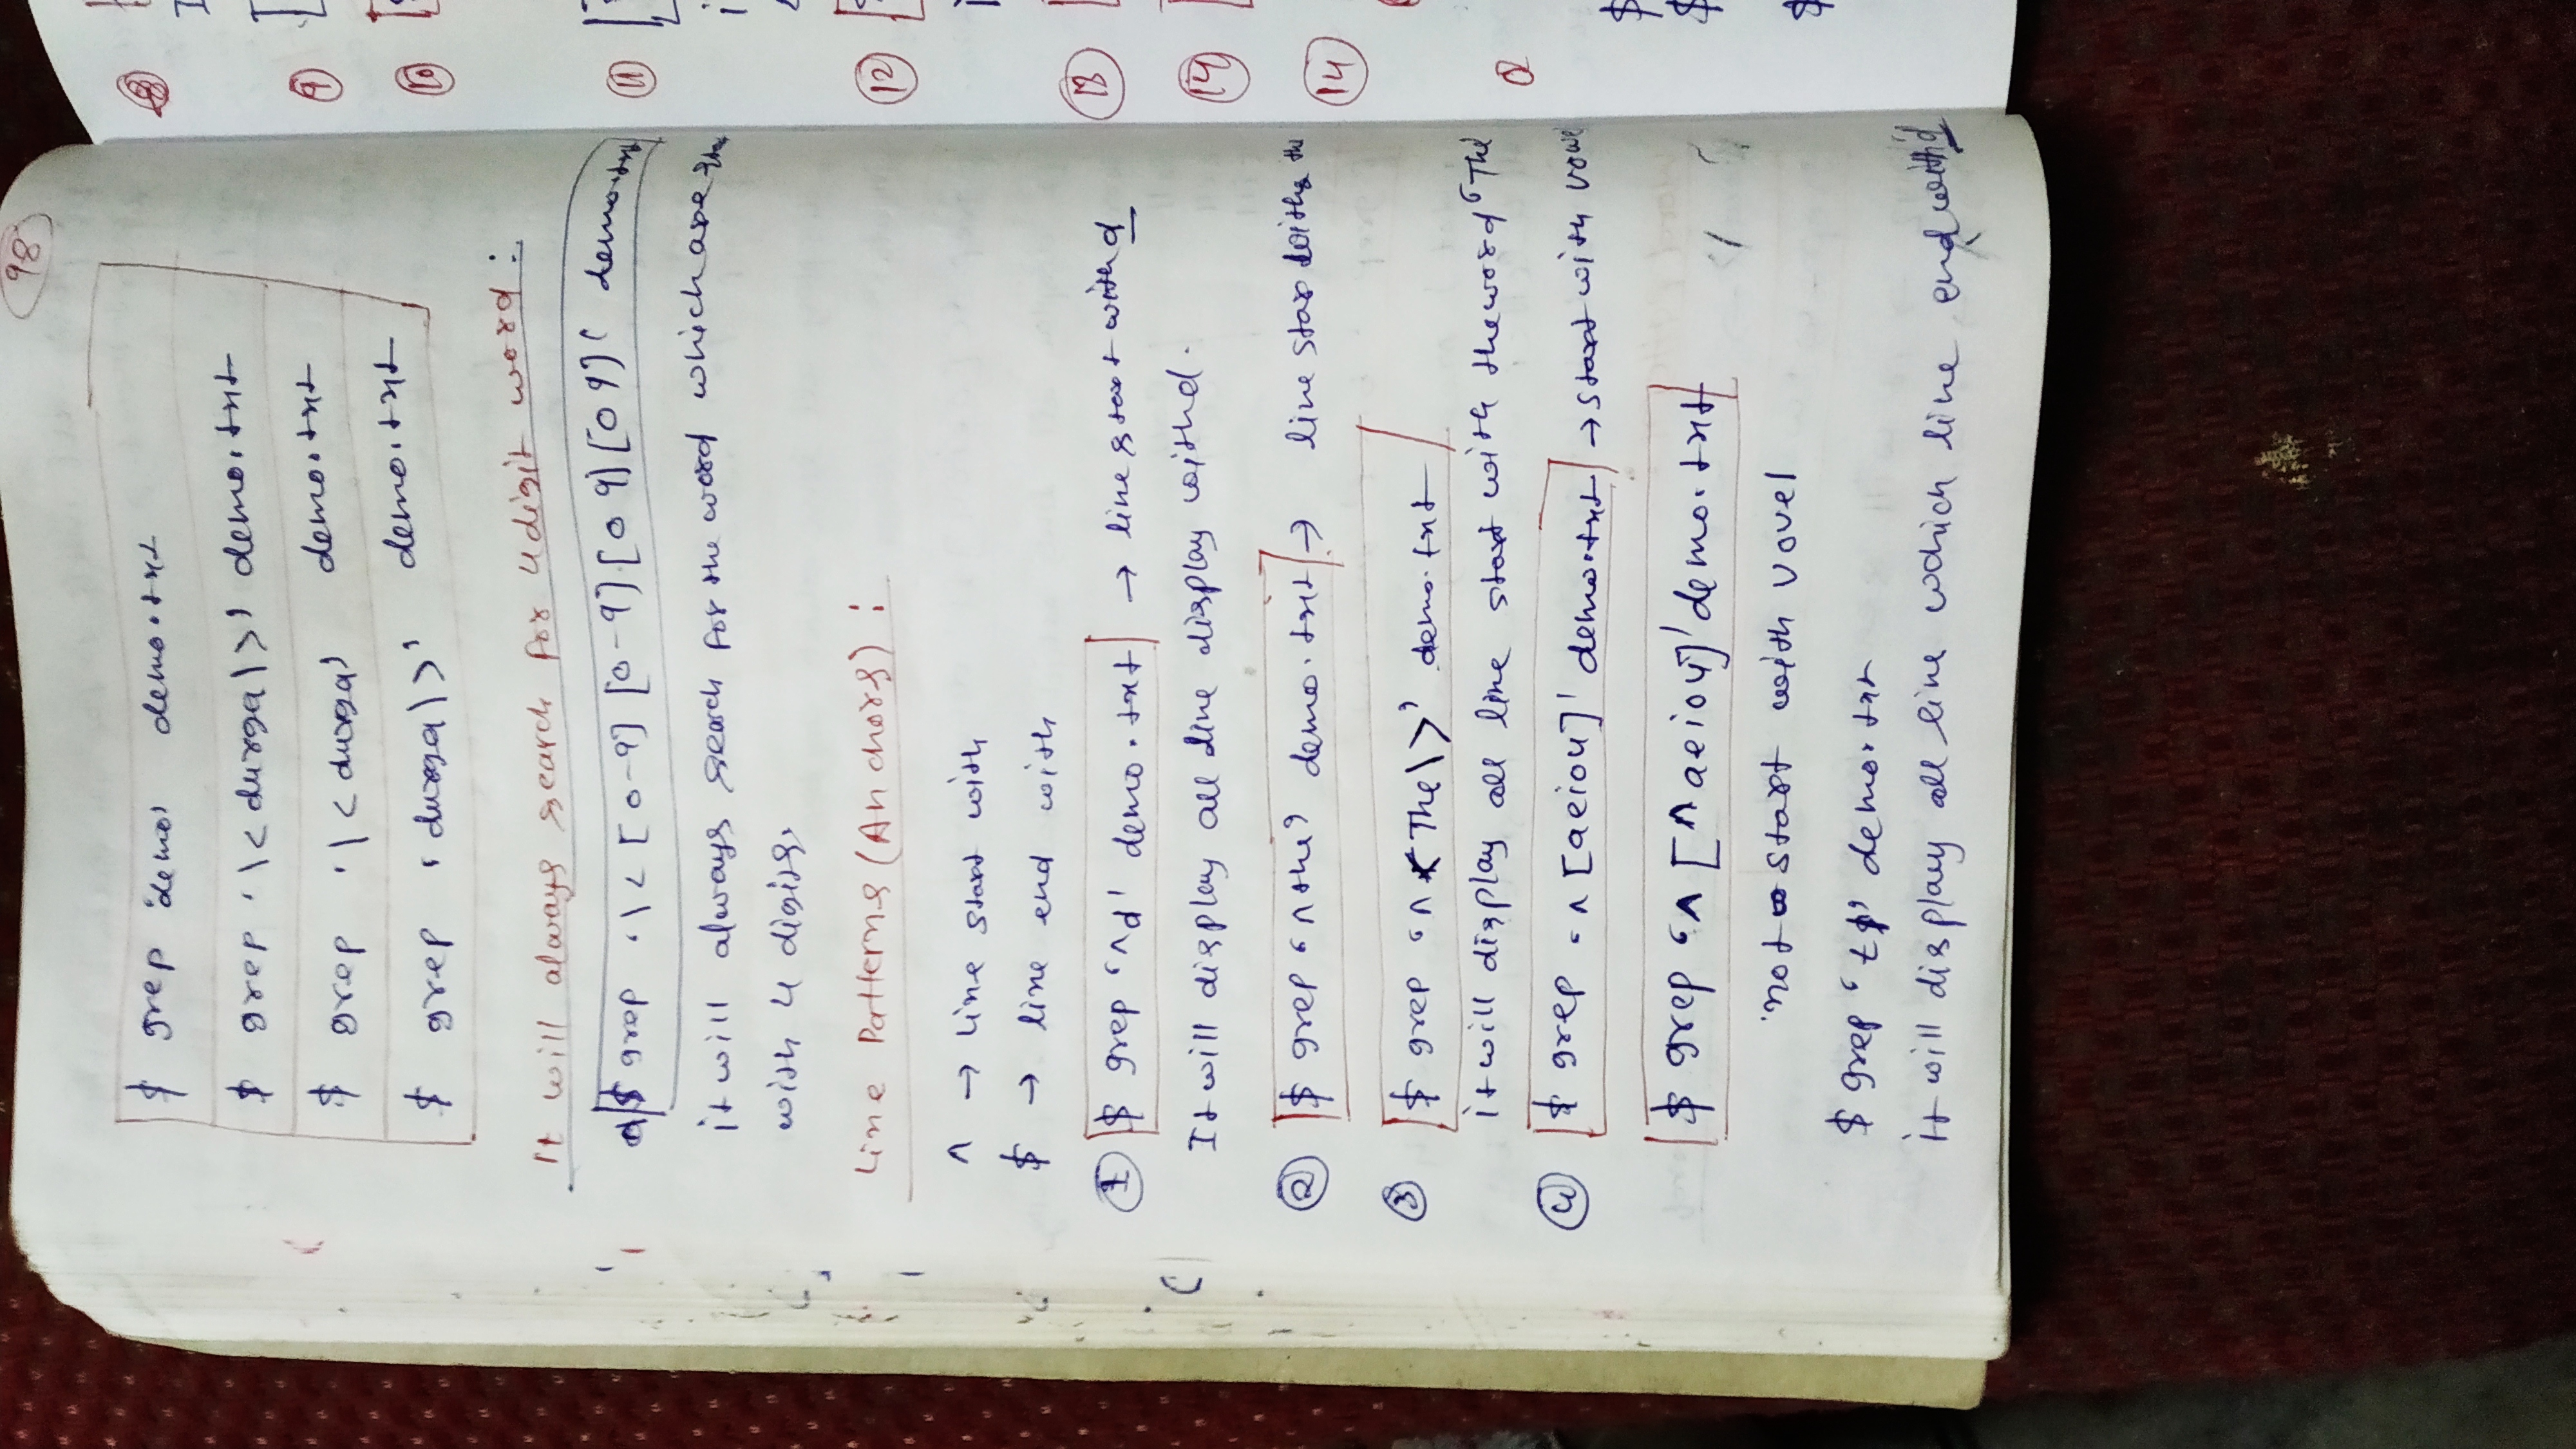 98
$ grep 'demo' demo.txt
$ grep '\<durga\>' demo.txt
$ grep '\<durga' demo.txt
$ grep 'durga\>' demo.txt
It will always search for 4 digit word :
$ grep '\<[0-9] [0-9] [0 9] [0 9]' demo.txt
it will always search for the word which are
with 4 digits.
Line Patterns (Anchors) :
^ → Line start with
$ → line end with
① $ grep '^d' demo.txt → line start with d
It will display all line display with d.
② $ grep '^the' demo.txt → line star with the
③ $ grep '^<The\>' demo.txt
it will display all line start with the word 'The
④ $ grep '^[aeiou]' demo.txt → start with vowe
$ grep '^[^aeiou]' demo.txt
not start with vovel
$ grep 't$' demo.txt
it will display all line which line end with d
8
9
10
11
12
13
14
14